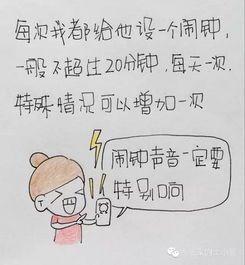 每次我都给他设一个闹钟,
一般不超过20分钟,每天一次.
特殊情况可以增加一次
闹钟声音一定要
特别响